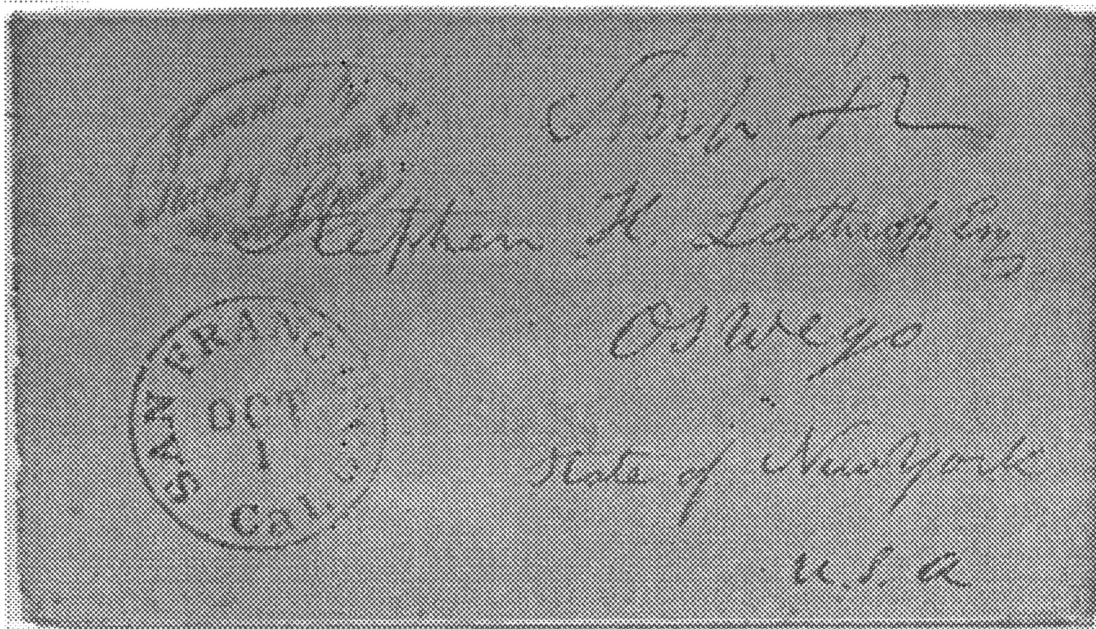 Forwarded by
Ship
Stephen H. Lathrop Esq
Oswego
State of New York
U.S.A
SAN FRANCISCO
OCT
1
Cal.